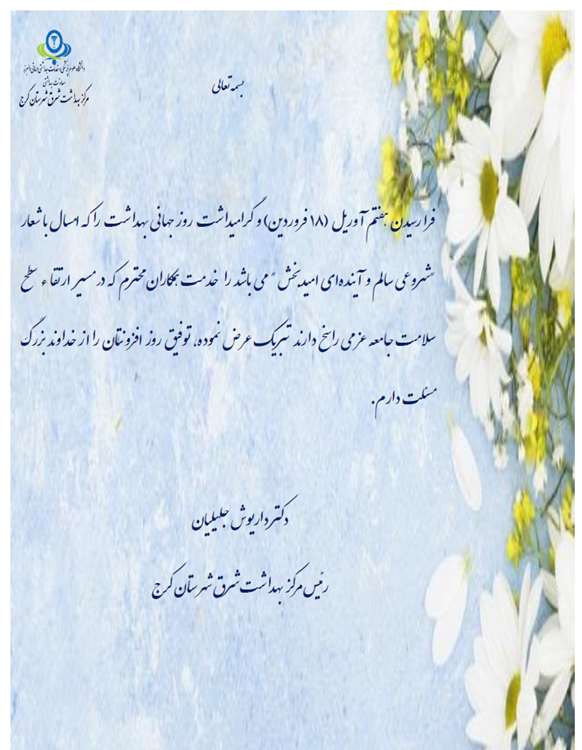 دانشگاه علوم پزشکی و خدمات بهداشتی درمانی البرز
معاونت بهداشتی
مرکز بهداشت شرق شهرستان کرج
بسمه تعالی
فرا رسیدن هفتم آوریل (۱۸ فروردین) و گرامیداشت روز جهانی بهداشت را که امسال با شعار
"شروعی سالم و آینده‌ای امیدبخش" می باشد را خدمت همکاران محترم که در مسیر ارتقاء سطح
سلامت جامعه عزمی راسخ دارند تبریک عرض نموده، توفیق روز افزونتان را از خداوند بزرگ
مسئلت دارم.
دکتر داریوش جلیلیان
رئیس مرکز بهداشت شرق شهرستان کرج